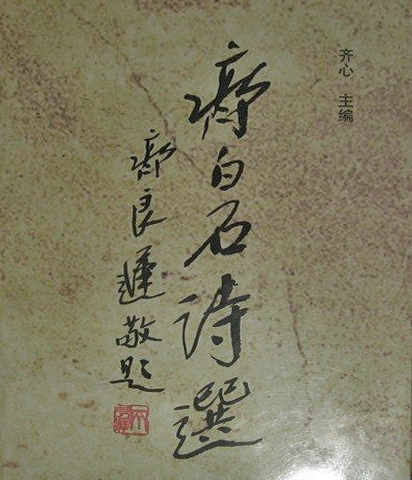 齐心 主编
齊白石詩選
齊良遲敬題